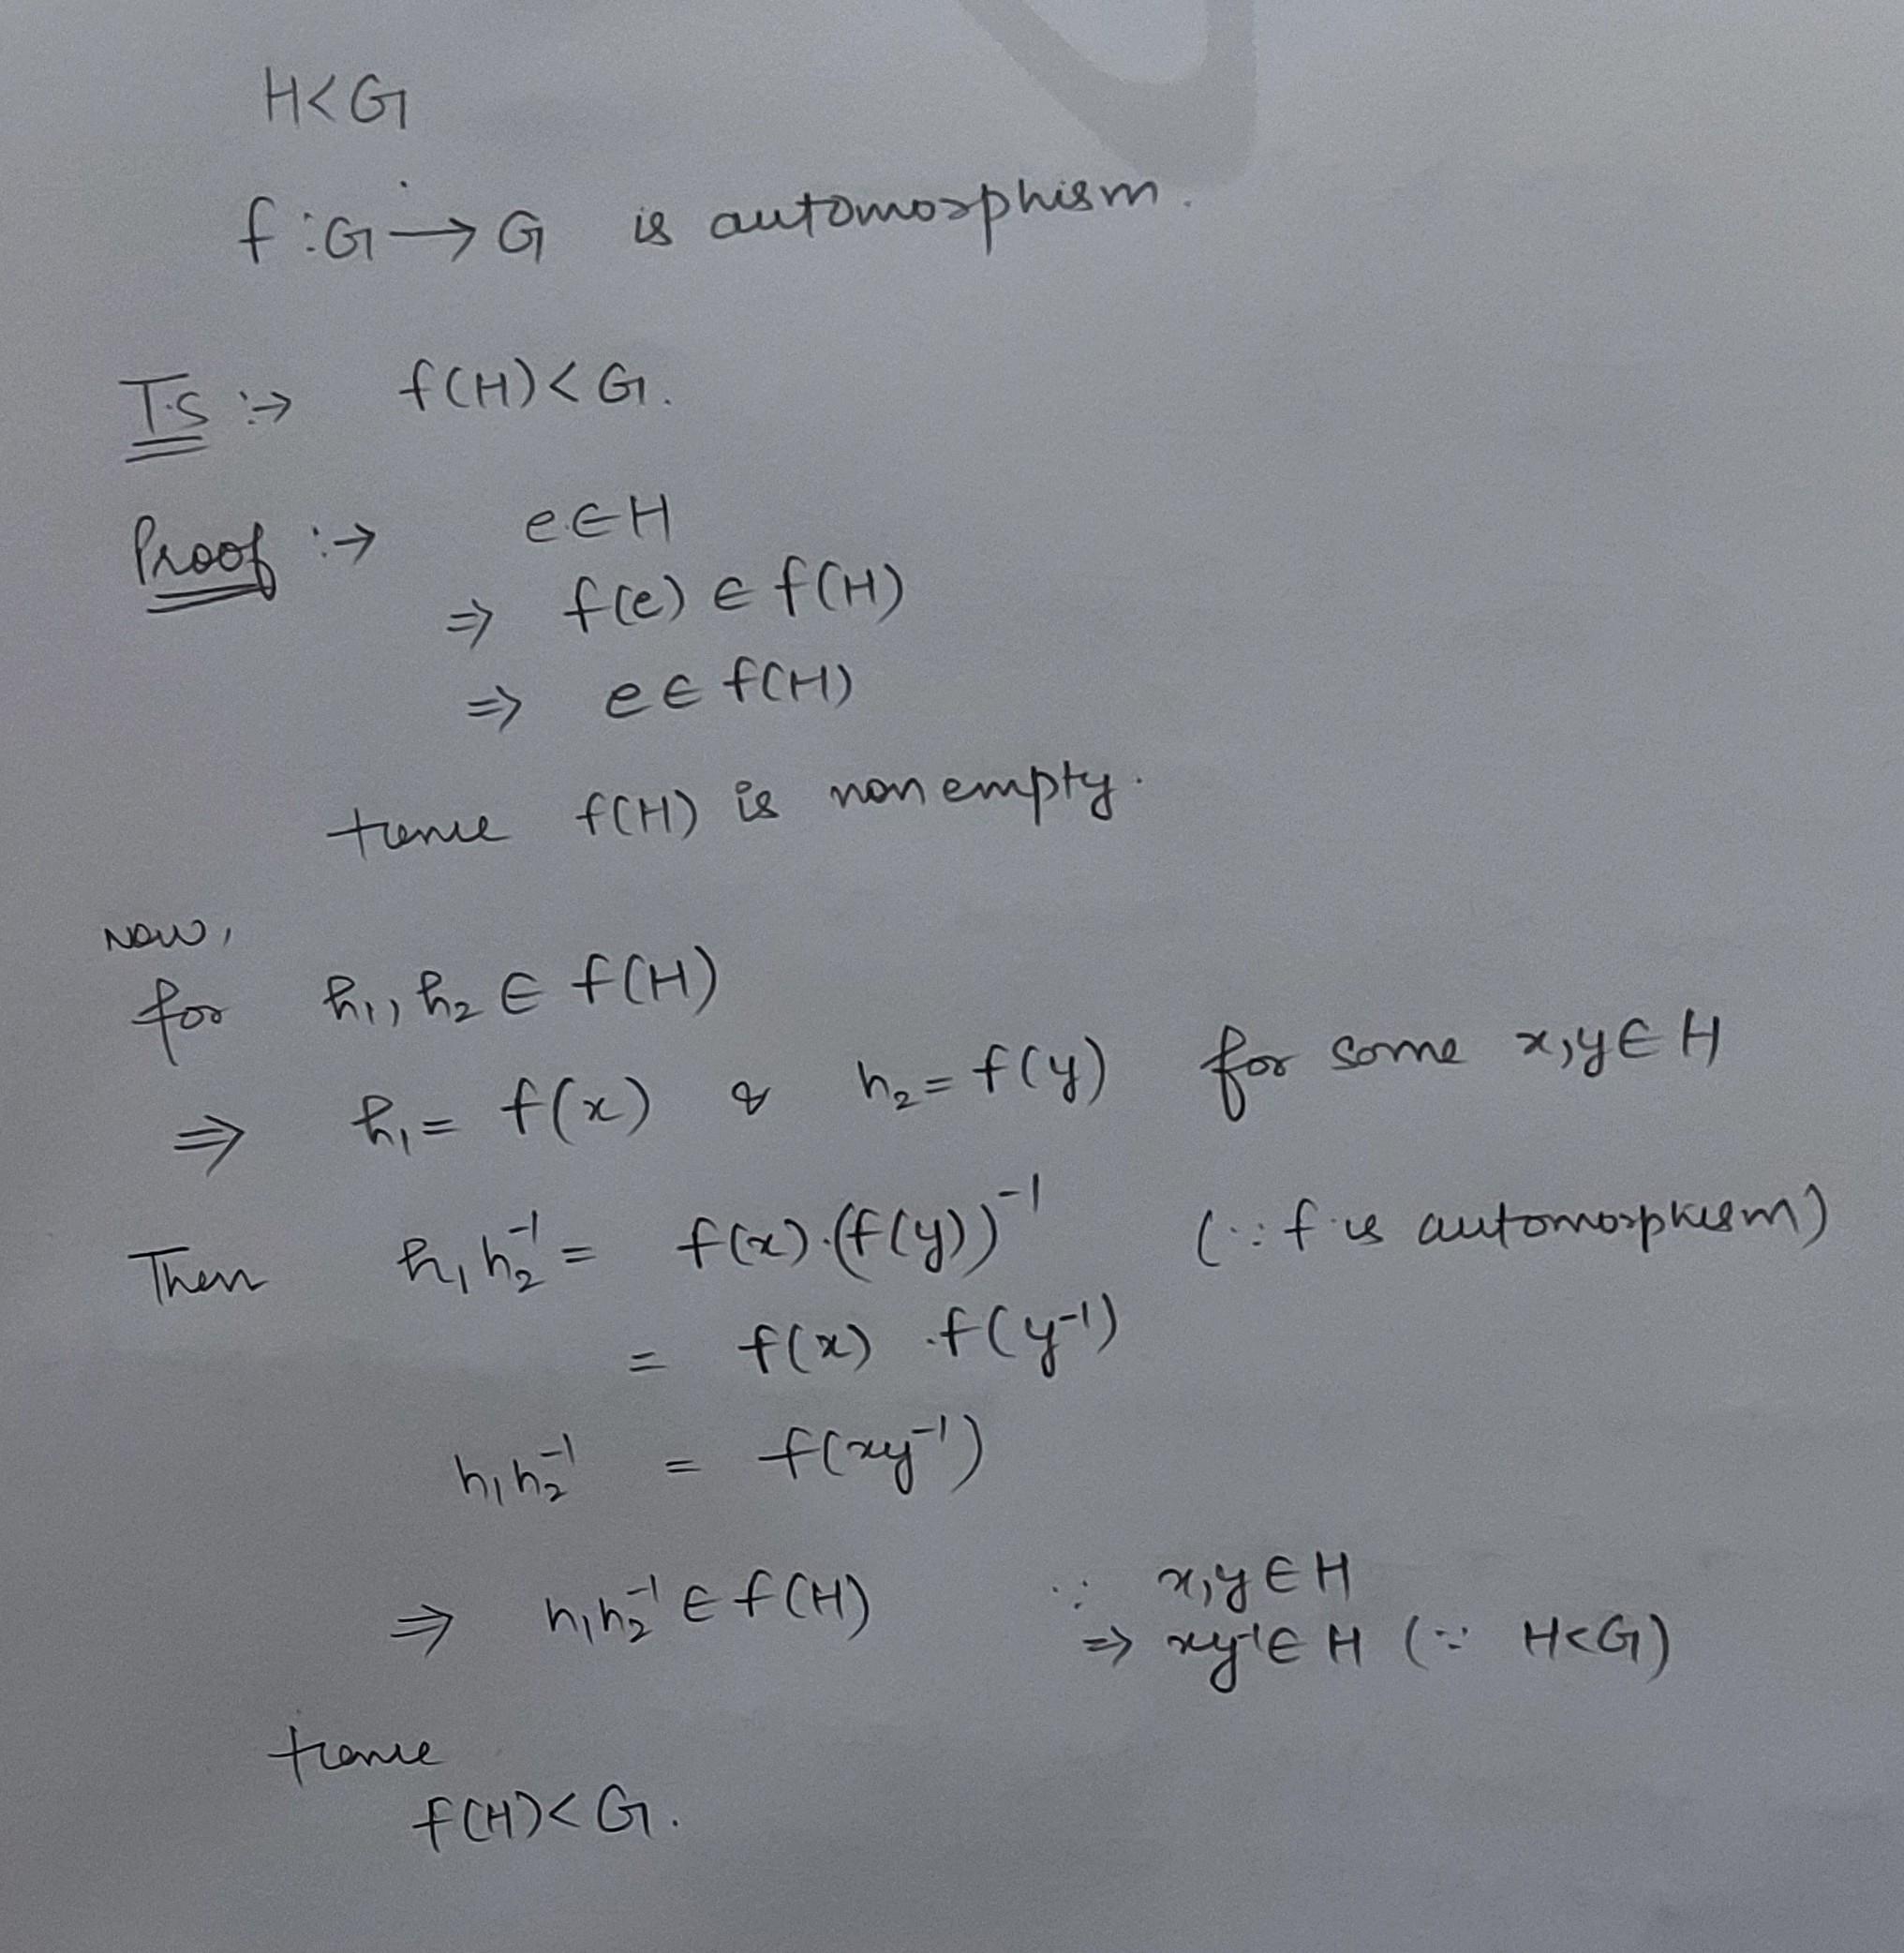 H<G
f:G→G is automorphism.
T.S :→ f(H)<G.
Proof :→ e∈H
⇒ f(e) ∈ f(H)
⇒ e∈ f(H)
Hence f(H) is non empty.
Now,
for h₁, h₂ ∈ f(H)
⇒ h₁= f(x) & h₂=f(y) for some x,y∈H
Then h₁h₂⁻¹ = f(x).(f(y))⁻¹ (∵ f is automorphism)
= f(x) .f(y⁻¹)
h₁h₂⁻¹ = f(xy⁻¹)
⇒ h₁h₂⁻¹ ∈ f(H) ∵ x,y∈H
⇒ xy⁻¹∈ H (∵ H<G)
Hence
f(H)<G.